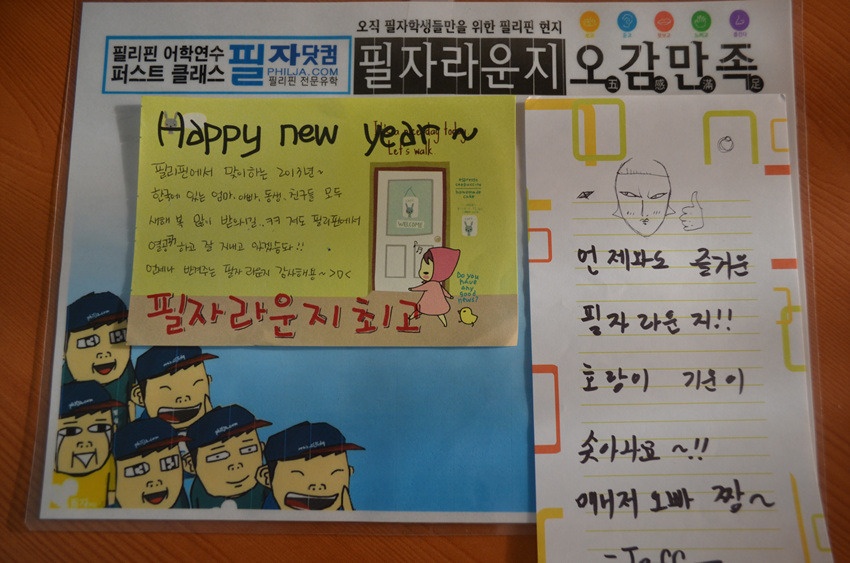 오직 필자학생들만을 위한 필리핀 현지
필리핀 어학연수
퍼스트 클래스
필자닷컴
PHILJA.COM
필리핀 전문유학
필자라운지
오감만족
五 感 滿 足
Happy new year~
It's a nice day today
Let's walk
필리핀에서 맞이하는 2013년~
한국에 있는 엄마, 아빠, 동생, 친구들 모두
새해 복 많이 받으시길..ㅋㅋ 저도 필리핀에서
열공하고 잘 지내고 있겠습돠!!
언제나 반겨주는 필자라운지 감사해용~ >ㅁ<
필자라운지 최고
WELCOME
Do you
have
any
good
news?
언제와도 즐거운
필자라운지!!
호랑이 기운이
솟아나요~!!
매니저 오빠 짱~
philja.com
philja.com
philja.com